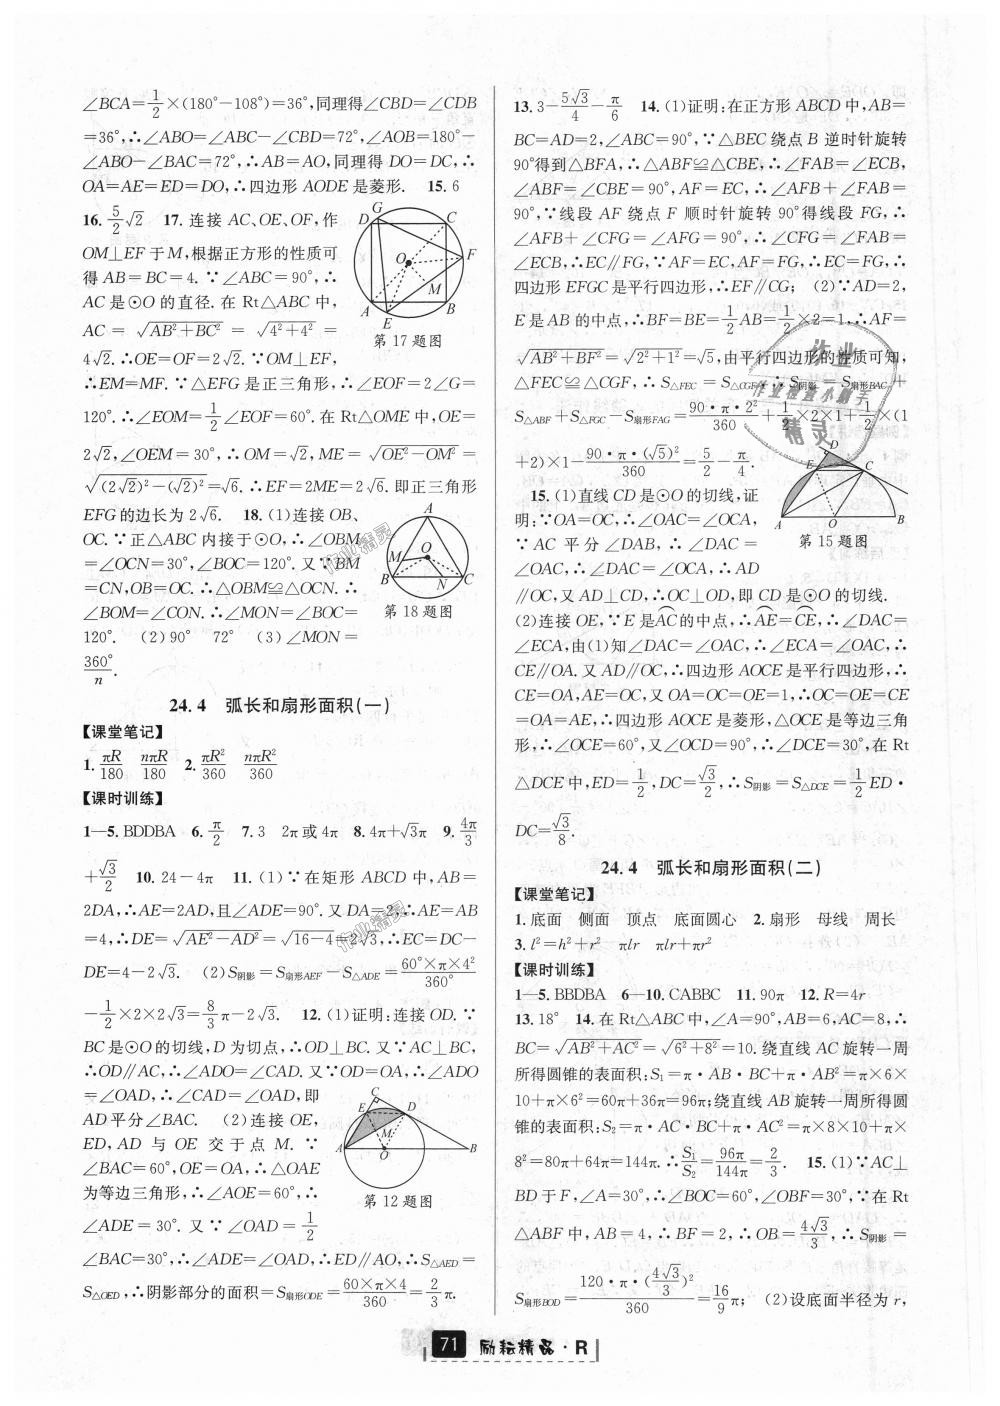 ∠BCA=1/2×(180°−108°)=36°,同理得∠CBD=∠CDB
=36°,∴∠ABO=∠ABC−∠CBD=72°,∠AOB=180°−
∠ABO−∠BAC=72°,∴AB=AO,同理得 DO=DC,∴
OA=AE=ED=DO,∴四边形 AODE 是菱形. 15. 6
16. 5/2√2 17. 连接 AC,OE,OF,作
OM⊥EF 于 M,根据正方形的性质可
得 AB=BC=4. ∵∠ABC=90°,∴
AC 是⊙O 的直径. 在 Rt△ABC 中,
AC = √(AB²+BC²) = √(4²+4²) =
4√2. ∴OE=OF=2√2. ∵OM⊥EF,
∴EM=MF. ∵△EFG 是正三角形,∴∠EOF=2∠G=
120°. ∴∠EOM=1/2∠EOF=60°. 在 Rt△OME 中,OE=
2√2,∠OEM=30°,∴OM=√2,ME=√(OE²−OM²)=
√((2√2)²−(√2)²)=√6. ∴EF=2ME=2√6. 即正三角形
EFG 的边长为 2√6. 18. (1)连接 OB,
OC. ∵正△ABC 内接于⊙O,∴∠OBM
=∠OCN=30°,∠BOC=120°. 又∵BM
=CN,OB=OC. ∴△OBM≌△OCN. ∴
∠BOM=∠CON. ∴∠MON=∠BOC=
120°. (2)90° 72° (3)∠MON=
360°/n.
D G C O F M A E B
第 17 题图
A M O B N C
第 18 题图
24. 4 弧长和扇形面积(一)
【课堂笔记】
1. πR/180 nπR/180 2. πR²/360 nπR²/360
【课时训练】
1—5. BDDBA 6. π/2 7. 3 2π 或 4π 8. 4π+√3π 9. 4π/3
+√3/2 10. 24−4π 11. (1)∵在矩形 ABCD 中,AB=
2DA,∴AE=2AD,且∠ADE=90°. 又 DA=2,∴AE=AB
=4,∴DE=√(AE²−AD²)=√(16−4)=2√3,∴EC=DC−
DE=4−2√3. (2)S阴影=S扇形AEF−S△ADE=60°×π×4²/360°
−1/2×2×2√3=8/3π−2√3. 12. (1)证明:连接 OD. ∵
BC 是⊙O 的切线,D 为切点,∴OD⊥BC. 又∵AC⊥BC,
∴OD∥AC,∴∠ADO=∠CAD. 又∵OD=OA,∴∠ADO
=∠OAD,∴∠CAD=∠OAD,即
AD 平分∠BAC. (2)连接 OE,
ED,AD 与 OE 交于点 M. ∵
∠BAC=60°,OE=OA,∴△OAE
为等边三角形,∴∠AOE=60°,∴
∠ADE=30°. 又∵∠OAD=1/2
∠BAC=30°,∴∠ADE=∠OAD,∴ED∥AO,∴S△AED=
S△OED,∴阴影部分的面积=S扇形ODE=60×π×4/360=2/3π.
C E D M A O B
第 12 题图
13. 3−5√3/4−π/6 14. (1)证明:在正方形 ABCD 中,AB=
BC=AD=2,∠ABC=90°,∵△BEC 绕点 B 逆时针旋转
90°得到△BFA,∴△ABF≌△CBE,∴∠FAB=∠ECB,
∠ABF=∠CBE=90°,AF=EC,∴∠AFB+∠FAB=
90°,∵线段 AF 绕点 F 顺时针旋转 90°得线段 FG,∴
∠AFB+∠CFG=∠AFG=90°,∴∠CFG=∠FAB=
∠ECB,∴EC∥FG,∵AF=EC,AF=FG,∴EC=FG,∴
四边形 EFGC 是平行四边形,∴EF∥CG; (2)∵AD=2,
E 是 AB 的中点,∴BF=BE=1/2AB=1/2×2=1,∴AF=
√(AB²+BF²)=√(2²+1²)=√5,由平行四边形的性质可知,
△FEC≌△CGF,∴S△FEC=S△CGF,∴S阴影=S扇形BAC+
S△ABF+S△FGC−S扇形FAG=90·π·2²/360+1/2×2×1+1/2×(1
+2)×1−90·π·(√5)²/360=5/2−π/4.
15. (1)直线 CD 是⊙O 的切线,证
明:∵OA=OC,∴∠OAC=∠OCA,
∵AC 平分∠DAB,∴∠DAC=
∠OAC,∴∠DAC=∠OCA,∴AD
∥OC,又 AD⊥CD,∴OC⊥OD,即 CD 是⊙O 的切线.
(2)连接 OE,∵E 是AC的中点,∴AE=CE,∴∠DAC=
∠ECA,由(1)知∠DAC=∠OAC,∴∠ECA=∠OAC,∴
CE∥OA. 又 AD∥OC,∴四边形 AOCE 是平行四边形,∴
CE=OA,AE=OC,又 OA=OC=OE=1,∴OC=OE=CE
=OA=AE,∴四边形 AOCE 是菱形,△OCE 是等边三角
形,∴∠OCE=60°,又∠OCD=90°,∴∠DCE=30°,在 Rt
△DCE 中,ED=1/2,DC=√3/2,∴S阴影=S△DCE=1/2ED·
DC=√3/8.
D E C A O B
第 15 题图
24. 4 弧长和扇形面积(二)
【课堂笔记】
1. 底面 侧面 顶点 底面圆心 2. 扇形 母线 周长
3. l²=h²+r² πlr πlr+πr²
【课时训练】
1—5. BBDBA 6—10. CABBC 11. 90π 12. R=4r
13. 18° 14. 在 Rt△ABC 中,∠A=90°,AB=6,AC=8,∴
BC=√(AB²+AC²)=√(6²+8²)=10. 绕直线 AC 旋转一周
所得圆锥的表面积:S₁=π·AB·BC+π·AB²=π×6×
10+π×6²=60π+36π=96π;绕直线 AB 旋转一周所得圆
锥的表面积:S₂=π·AC·BC+π·AC²=π×8×10+π×
8²=80π+64π=144π. ∴S₁/S₂=96π/144π=2/3. 15. (1)∵AC⊥
BD 于 F,∠A=30°,∴∠BOC=60°,∠OBF=30°,∵在 Rt
△ABF 中,AB=4,∴BF=2,∴OB=4√3/3,∴S阴影=
S扇形BOD=120·π·(4√3/3)²/360=16/9π; (2)设底面半径为 r,
作业
作业检查小助手
精灵
作业精灵
作业精灵
71 励耘精品·R